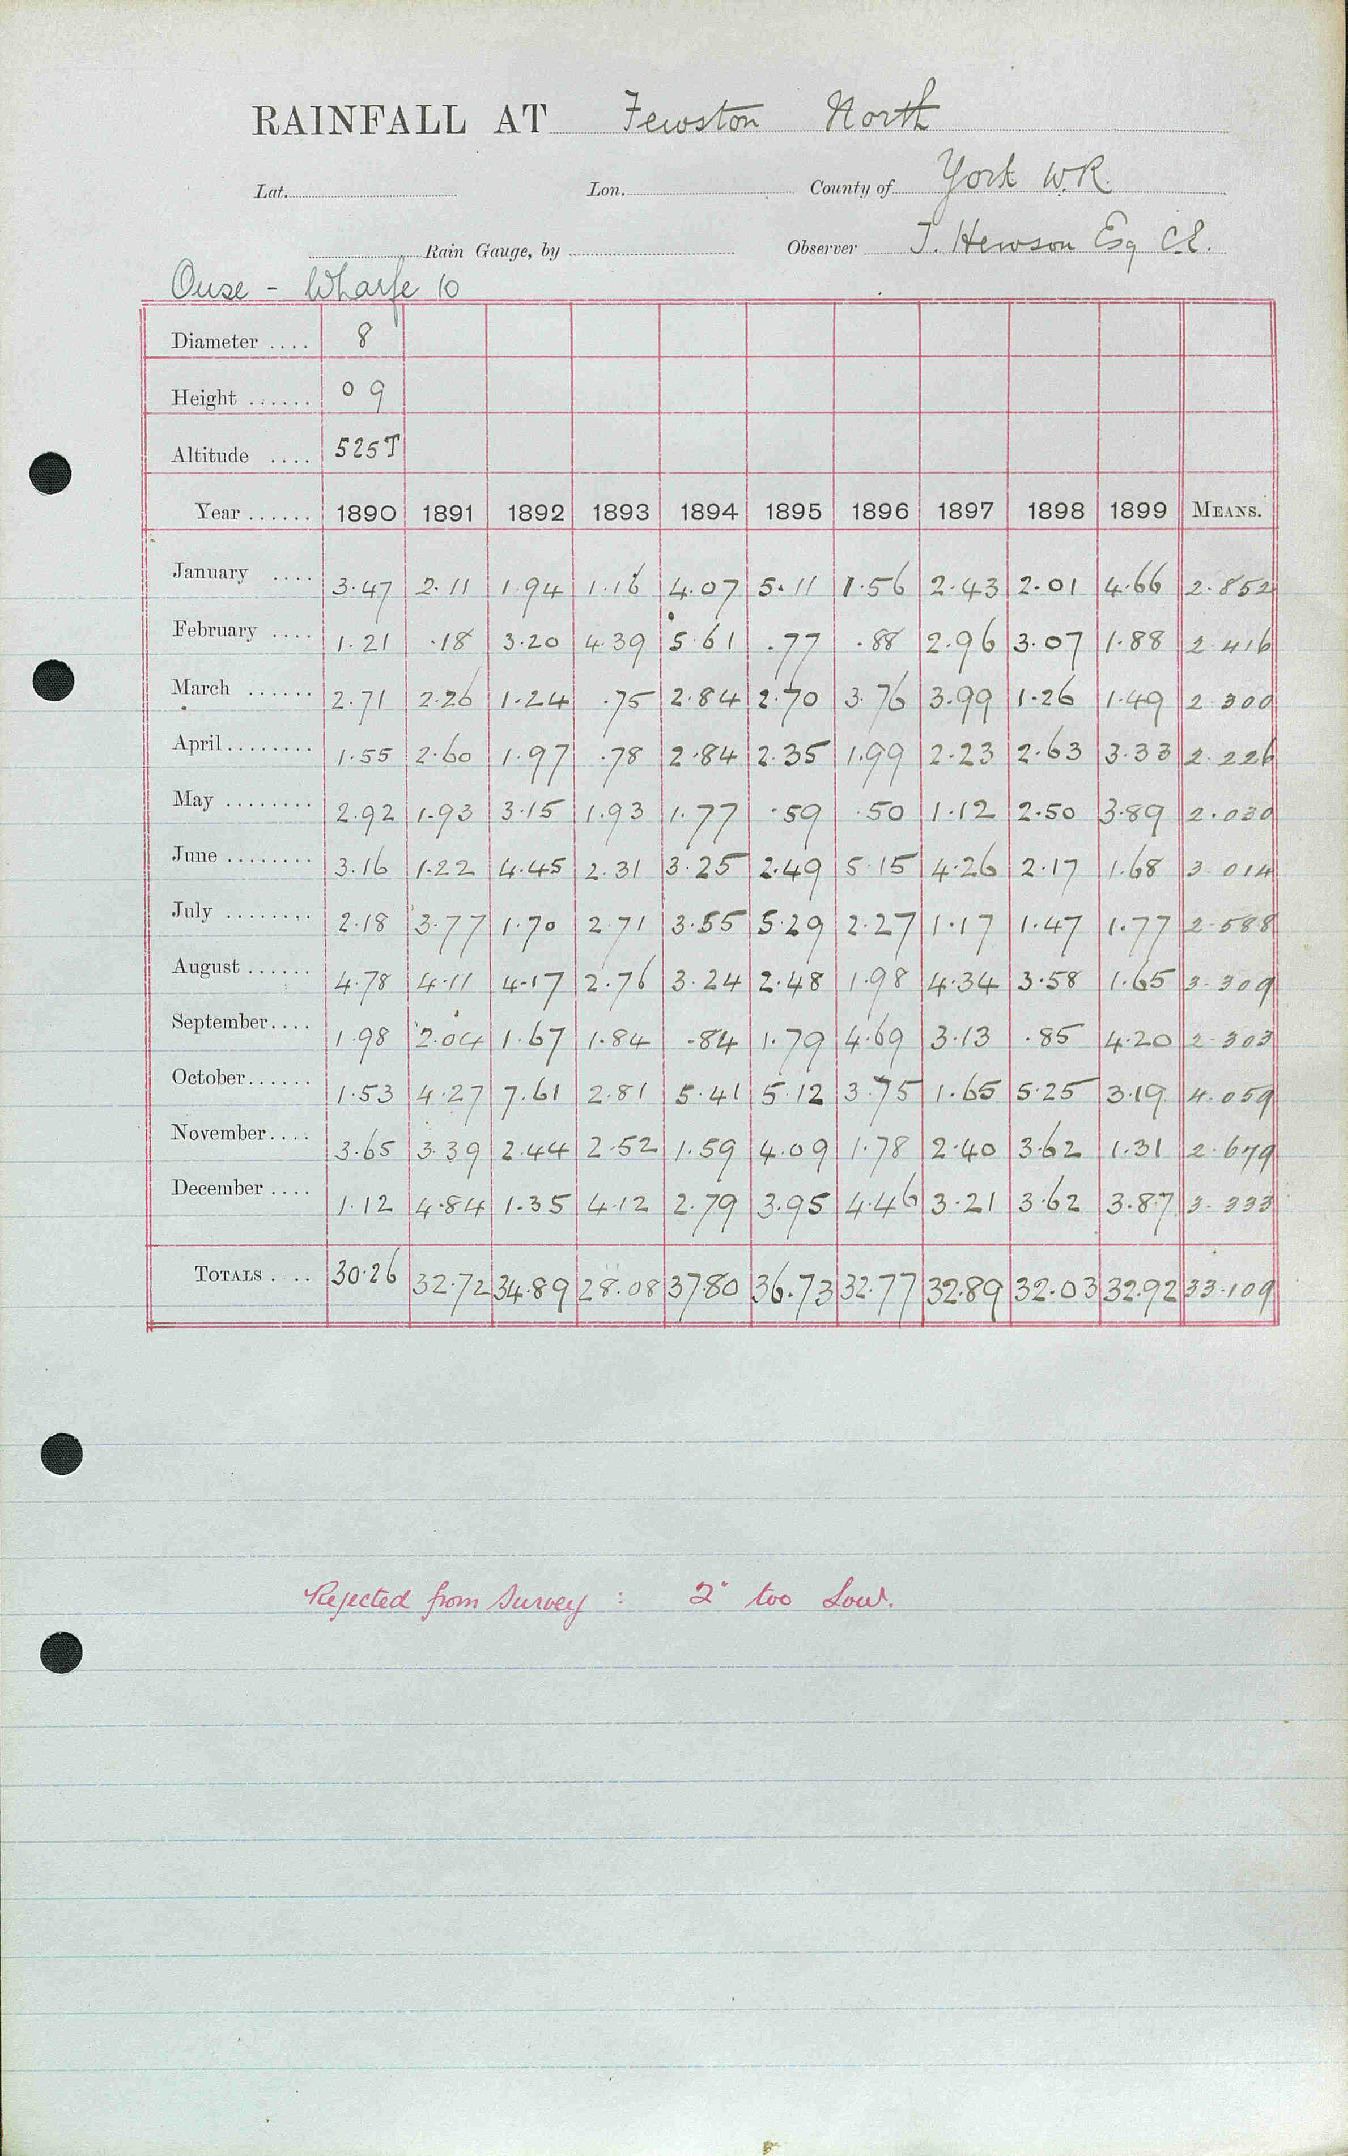 RAINFALL AT Fewston North
Lat. Lon. County of York W.R.
Rain Gauge, by Observer T. Hewson Esq C.E.
Ouse - Wharfe 10
Diameter .... 8
Height ...... 0 9
Altitude .... 525T
Year ...... 1890 1891 1892 1893 1894 1895 1896 1897 1898 1899 MEANS.
January .... 3.47 2.11 1.94 1.16 4.07 5.11 1.56 2.43 2.01 4.66 2.852
February .... 1.21 .18 3.20 4.39 5.61 .77 .88 2.96 3.07 1.88 2.416
March ...... 2.71 2.26 1.24 .75 2.84 2.70 3.76 3.99 1.26 1.49 2.300
April........ 1.55 2.60 1.97 .78 2.84 2.35 1.99 2.23 2.63 3.33 2.226
May ........ 2.92 1.93 3.15 1.93 1.77 .59 .50 1.12 2.50 3.89 2.030
June ........ 3.16 1.22 4.45 2.31 3.25 2.49 5.15 4.26 2.17 1.68 3.014
July ........ 2.18 3.77 1.70 2.71 3.55 5.29 2.27 1.17 1.47 1.77 2.588
August ...... 4.78 4.11 4.17 2.76 3.24 2.48 1.98 4.34 3.58 1.65 3.309
September.... 1.98 2.04 1.67 1.84 .84 1.79 4.69 3.13 .85 4.20 2.303
October...... 1.53 4.27 7.61 2.81 5.41 5.12 3.75 1.65 5.25 3.19 4.059
November.... 3.65 3.39 2.44 2.52 1.59 4.09 1.78 2.40 3.62 1.31 2.679
December .... 1.12 4.84 1.35 4.12 2.79 3.95 4.46 3.21 3.62 3.87 3.333
TOTALS .... 30.26 32.72 34.89 28.08 37.80 36.73 32.77 32.89 32.03 32.92 33.109
Rejected from Survey : 2" too Low.